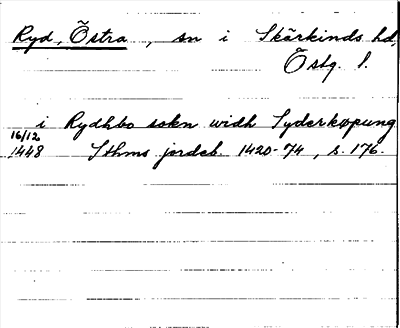 Ryd, Östra, sn i Skärkinds hd,
Östg. l.
i Rydhbo sokn widh Syderkøpung
16/12
1448 Sthms jordeb. 1420-74, s. 176.